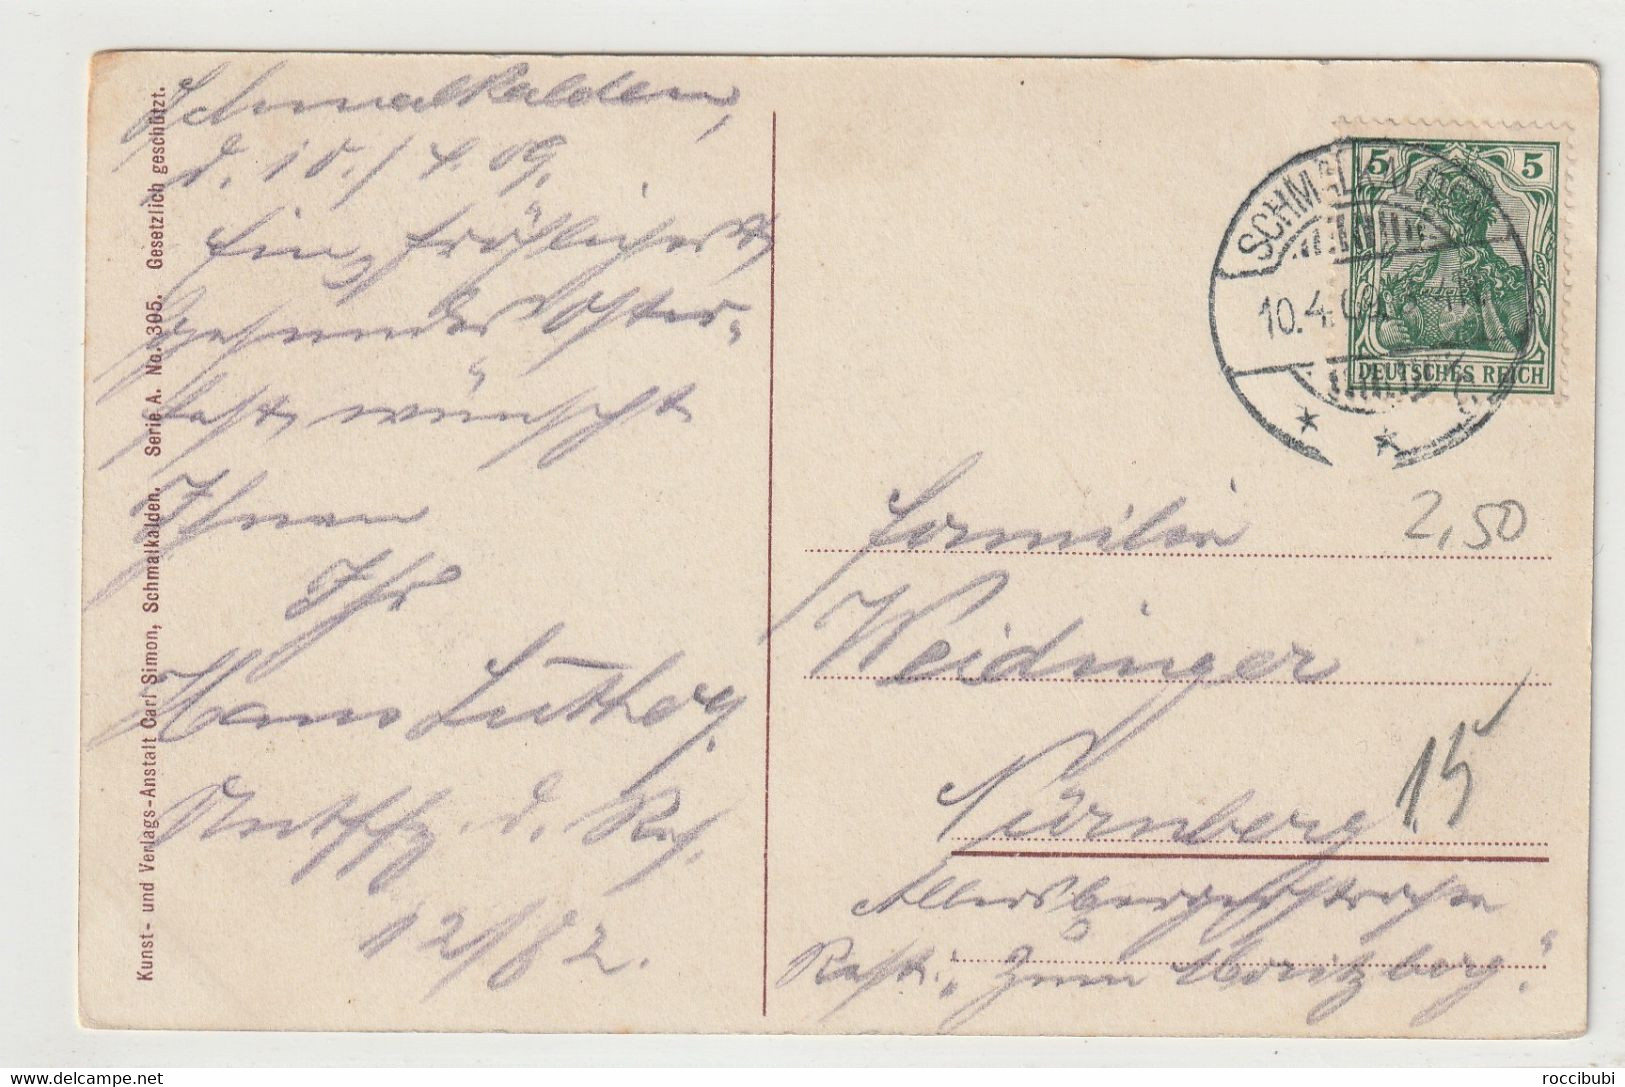 Kunst- und Verlags-Anstalt Carl Simon, Schmalkalden. Serie A. No. 305. Gesetzlich geschützt.
Schmalkalden,
d. 10./4.09.
Ein fröhliches &
gesundes Oster-
fest, wünscht
Ihnen
Ihr
Hans Luther,
d.
12/82.
5 5
DEUTSCHES REICH
SCHMALKALDEN
10.4.09.
2,50
Familie
Weidinger
Nürnberg.
15
Allersbergerstrasse
Rest. „Zum Moritzberg".
delcampe.net
roccibubi